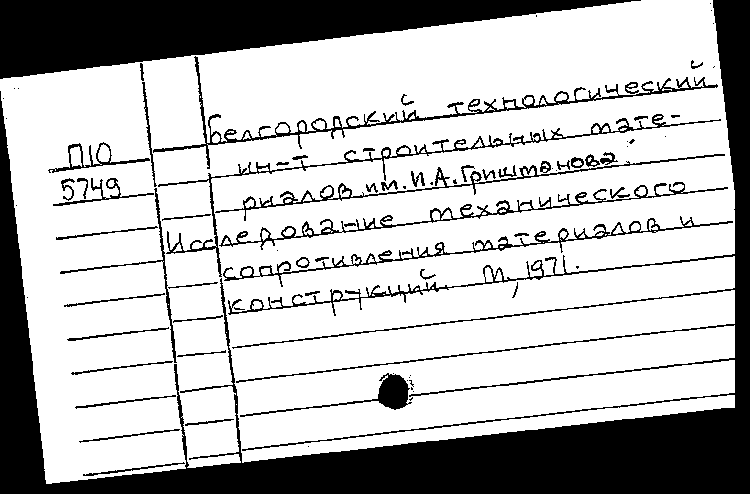 П10
5749
Белгородский технологический
ин-т строительных мате-
риалов им. И.А. Гриштанова.
Исследование механического
сопротивления материалов и
конструкций. М., 1971.